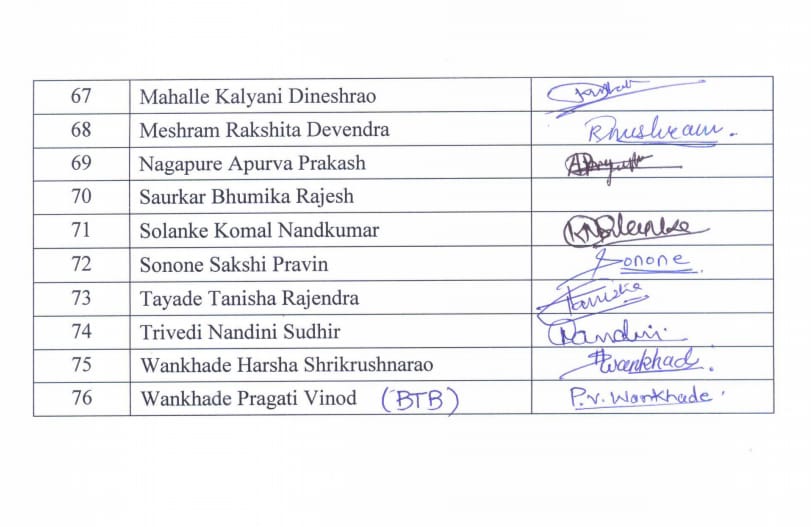 67 Mahalle Kalyani Dineshrao
68 Meshram Rakshita Devendra
69 Nagapure Apurva Prakash
70 Saurkar Bhumika Rajesh
71 Solanke Komal Nandkumar
72 Sonone Sakshi Pravin Sonone
73 Tayade Tanisha Rajendra
74 Trivedi Nandini Sudhir Nandini
75 Wankhade Harsha Shrikrushnarao
76 Wankhade Pragati Vinod (BTB) P.V. Wankhade